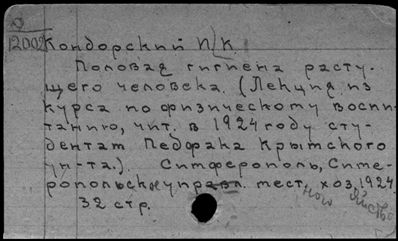 12002
Кондорский И/К.
Половая гигиена расту-
щего человека. (Лекция из
курса по физическому воспи-
танию, чит. в 1924 году сту-
дентам Педфака Крымского
ун-та.). Симферополь, Симфе-
ропольск управл. мест. хоз. 1924.
32 стр.